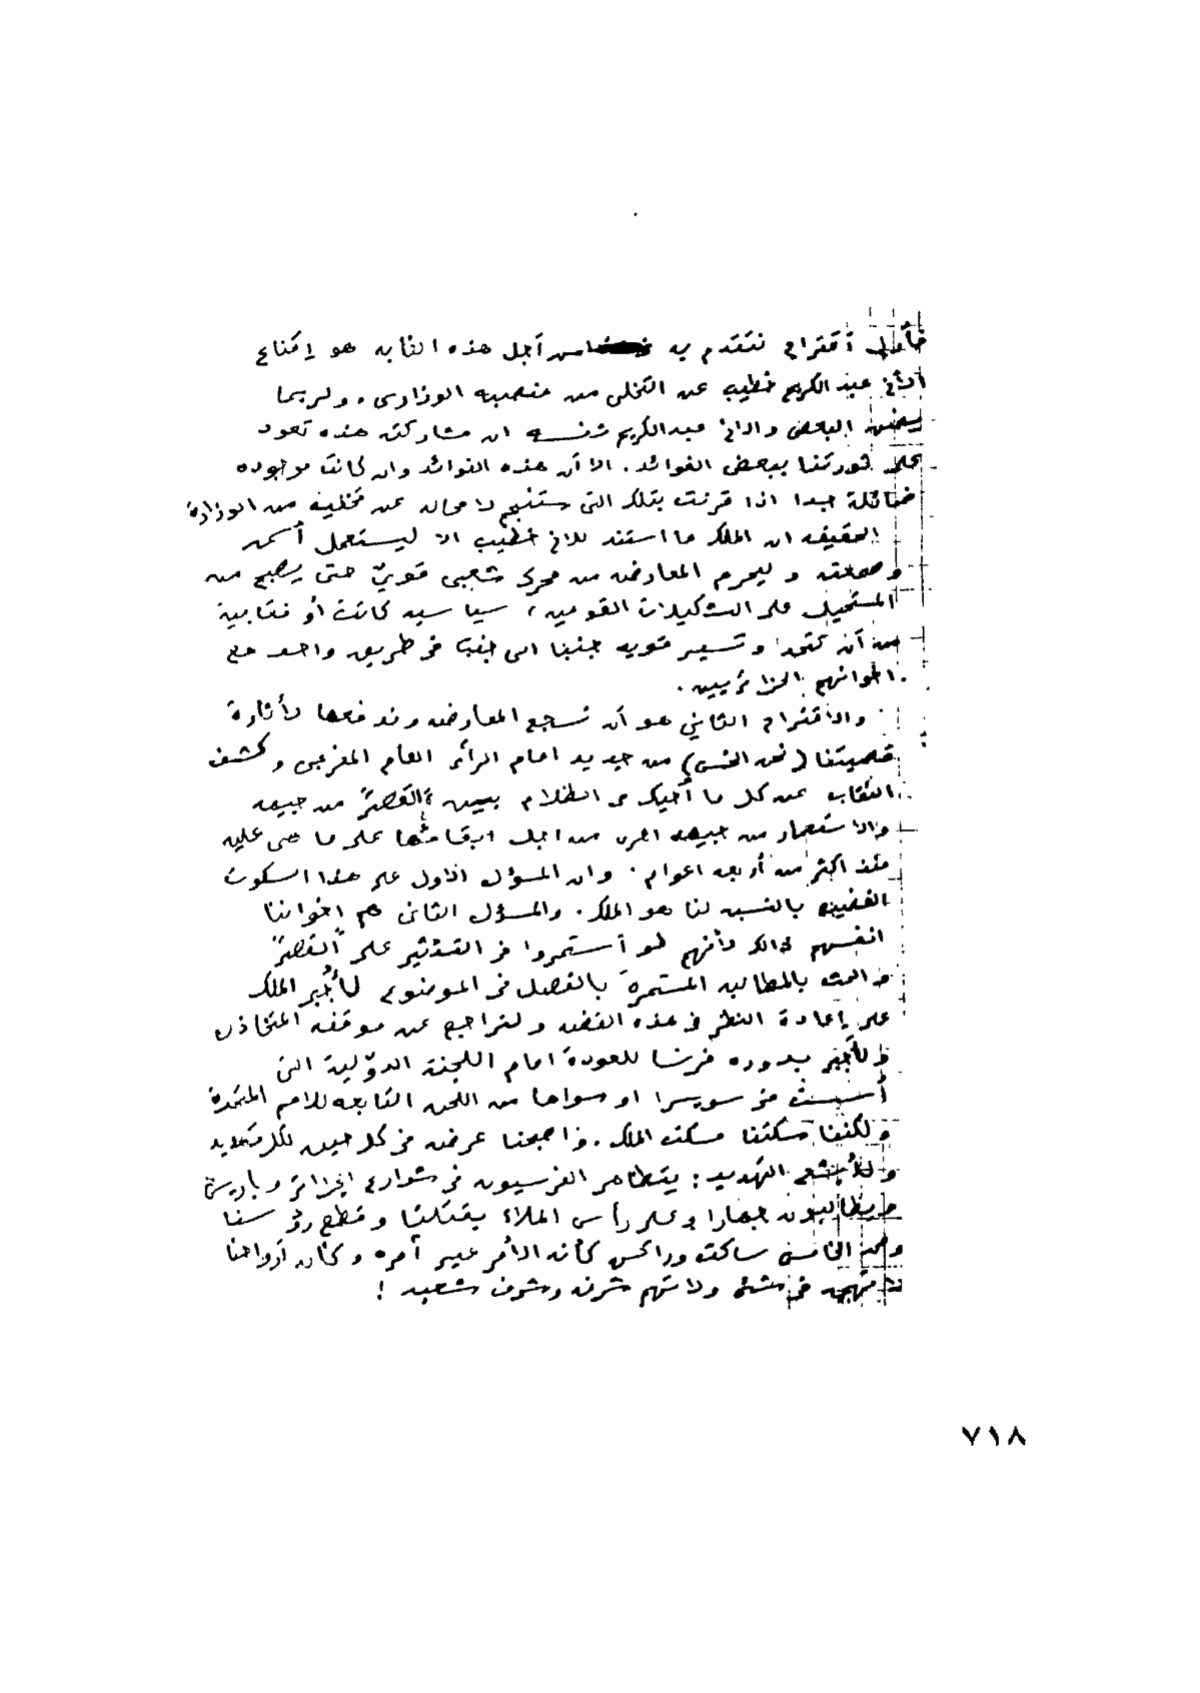 فأول أقتراح نتقدم به من أجل هذه الغايه هو إقناع
الأخ عبد الكريم خطيب عن التخلى من منصبه الوزارى. ولربما
يظن البعض والاخ عبد الكريم نفسه ان مشاركته هذه تعود
على ثورتنا ببعض الفوائد. الا أن هذه الفوائد وان كانت موجوده
ضائلة جدا اذا قرنت بتلك التى ستنتج لا محاله عن تخليه من الوزارة
الحقيقه ان الملك ما استند للاخ خطيب الا ليستعمل أسمه
وسمعته وليحرم المعارضه من محرك شعبى قويّ حتى يصبح من
المستحيل على التشكيلات القوميه، سياسيه كانت أو نقابية
من أن تتحد وتسير قويه جنبا الى جنب فى طريق واحد مع
اخوانهم الجزائريين.
والاقتراح الثاني هو أن نشجع المعارضه وندفعها لأثارة
قضيتنا (نحن الخمسى) من جديد امام الرأى العام المغربى وكشف
النقاب عن كل ما أحيك فى الظلام بين "القصر" من جهه
والاستعمار من جهه اخرى من اجل ابقائها على ما هى عليه
منذ اكثر من أربعه اعوام. وان المسؤل الاول على هذا السكوت
بالنسبه لنا هو الملك. والمسؤل الثانى هم اخواننا
انفسهم ذالك لأنهم لو أستمروا فى التأثير على "القصر"
بالمطالبه المستمرة بالفصل فى الموضوع لأُجبر الملك
على إعادة النظر فى هذه القضيه ولتراجع عن موقفه المتخاذل
ولأجبر بدوره فرنسا للعودة امام اللجنة الدوّلية التى
أسست فى سويسرا او سواها من اللجن التابعه للامم المتحدة
ولكننا سكتنا سكت الملك. فاصبحنا عرضه فى كل حين لكل تهديد
ولأبشع التهديد: يتظاهر الفرنسيون فى شوارع الجزائر وباريس
ويطالبون جهارا وعلى رأس الملاء بقتلنا وقطع رؤسنا
ومحمد الخامس ساكت وراكس كأن الأمر غير أمره وكان أرواحنا
لا تهمه فى شئ ولا تهم شرفه وشرف شعبه!
٧١٨